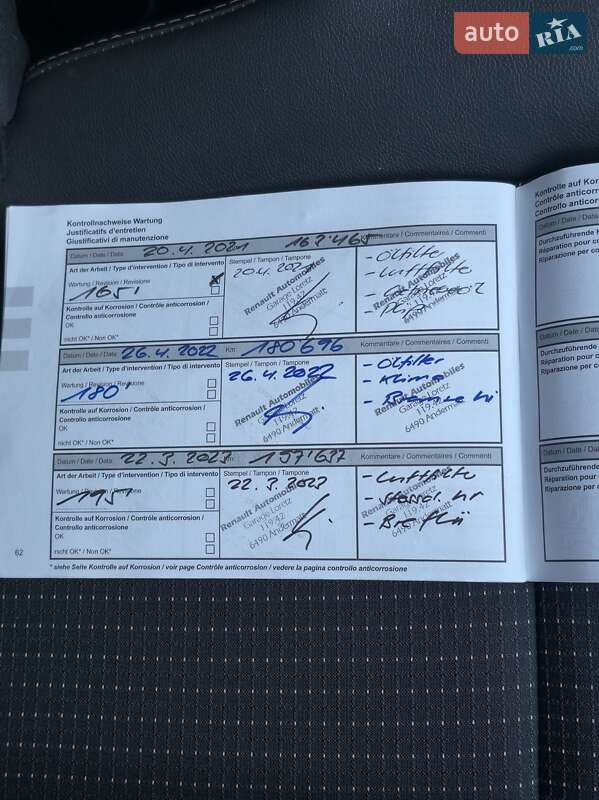 auto RIA
.com
Kontrollnachweise Wartung
Justificatifs d'entretien
Giustificativi di manutenzione
Datum / Date / Data 20.4.2021 Kommentare / Commentaires / Commenti
Art der Arbeit / Type d'intervention / Tipo di intervento
Stempel / Tampon / Tampone
20.4.2021
- Ölfilter
Wartung / Revision / Revisione
165'
Renault Automobiles
Garage Loretz
119 42
6490 Andermatt
- Luftfilter
Kontrolle auf Korrosion / Contrôle anticorrosion /
Controllo anticorrosione
OK
nicht OK* / Non OK*
Datum / Date / Data 26.4.2022 Km 180'696 Kommentare / Commentaires / Commenti
Art der Arbeit / Type d'intervention / Tipo di intervento
Stempel / Tampon / Tampone
26.4.2022
- Ölfilter
Wartung / Revision / Revisione
180'
Renault Automobiles
Garage Loretz
119 42
6490 Andermatt
- Klima
Kontrolle auf Korrosion / Contrôle anticorrosion /
Controllo anticorrosione
OK
nicht OK* / Non OK*
Datum / Date / Data 22.3.2023 197'637 Kommentare / Commentaires / Commenti
Art der Arbeit / Type d'intervention / Tipo di intervento
Stempel / Tampon / Tampone
22.3.2023
- Luftfilter
Wartung / Revision / Revisione
195'
Renault Automobiles
Garage Loretz
119 42
6490 Andermatt
Kontrolle auf Korrosion / Contrôle anticorrosion /
Controllo anticorrosione
OK
nicht OK* / Non OK*
* siehe Seite Kontrolle auf Korrosion / voir page Contrôle anticorrosion / vedere la pagina controllo anticorrosione
62
Kontrolle auf
Contrôle
Controllo
Datum / Date / Data
Durchzuführende
Réparation pour
Riparazione per
Datum / Date / Data
Durchzuführende
Réparation pour
Riparazione per
Datum / Date / Data
Durchzuführende
Réparation pour
Riparazione per